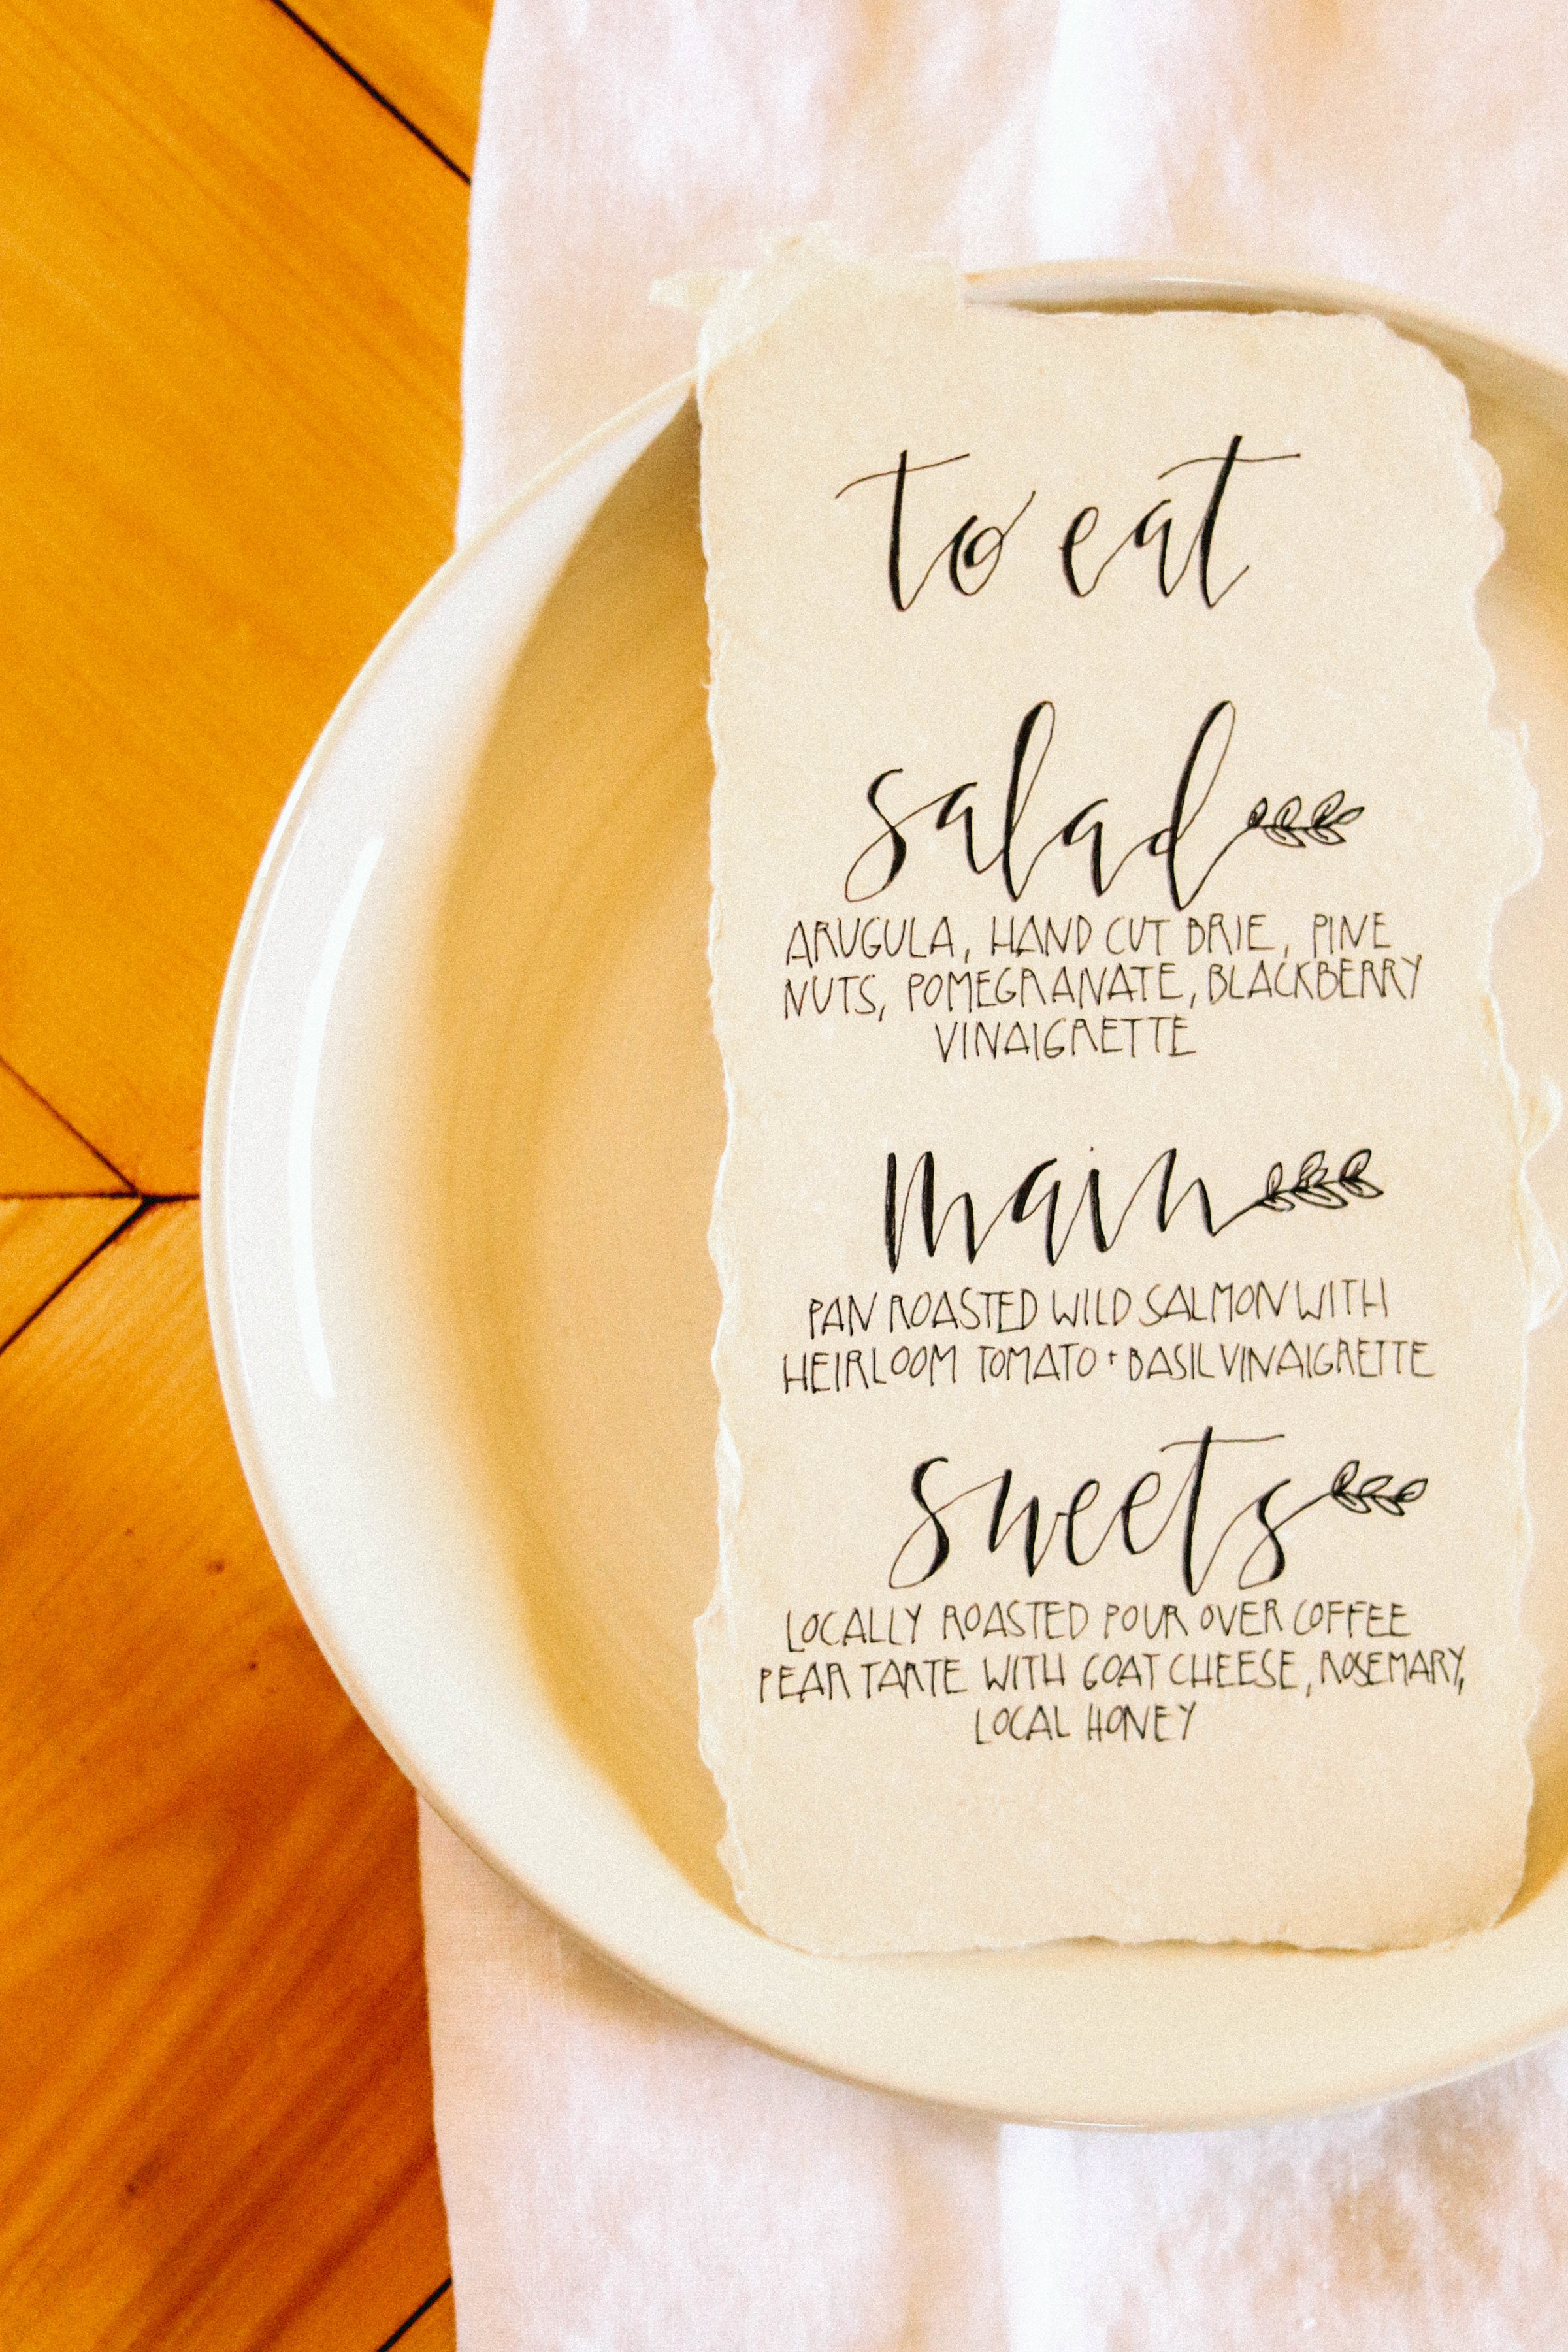 to eat
salad
ARUGULA, HAND CUT BRIE, PINE
NUTS, POMEGRANATE, BLACKBERRY
VINAIGRETTE
main
PAN ROASTED WILD SALMON WITH
HEIRLOOM TOMATO + BASIL VINAIGRETTE
sweets
LOCALLY ROASTED POUR OVER COFFEE
PEAR TARTE WITH GOAT CHEESE, ROSEMARY,
LOCAL HONEY